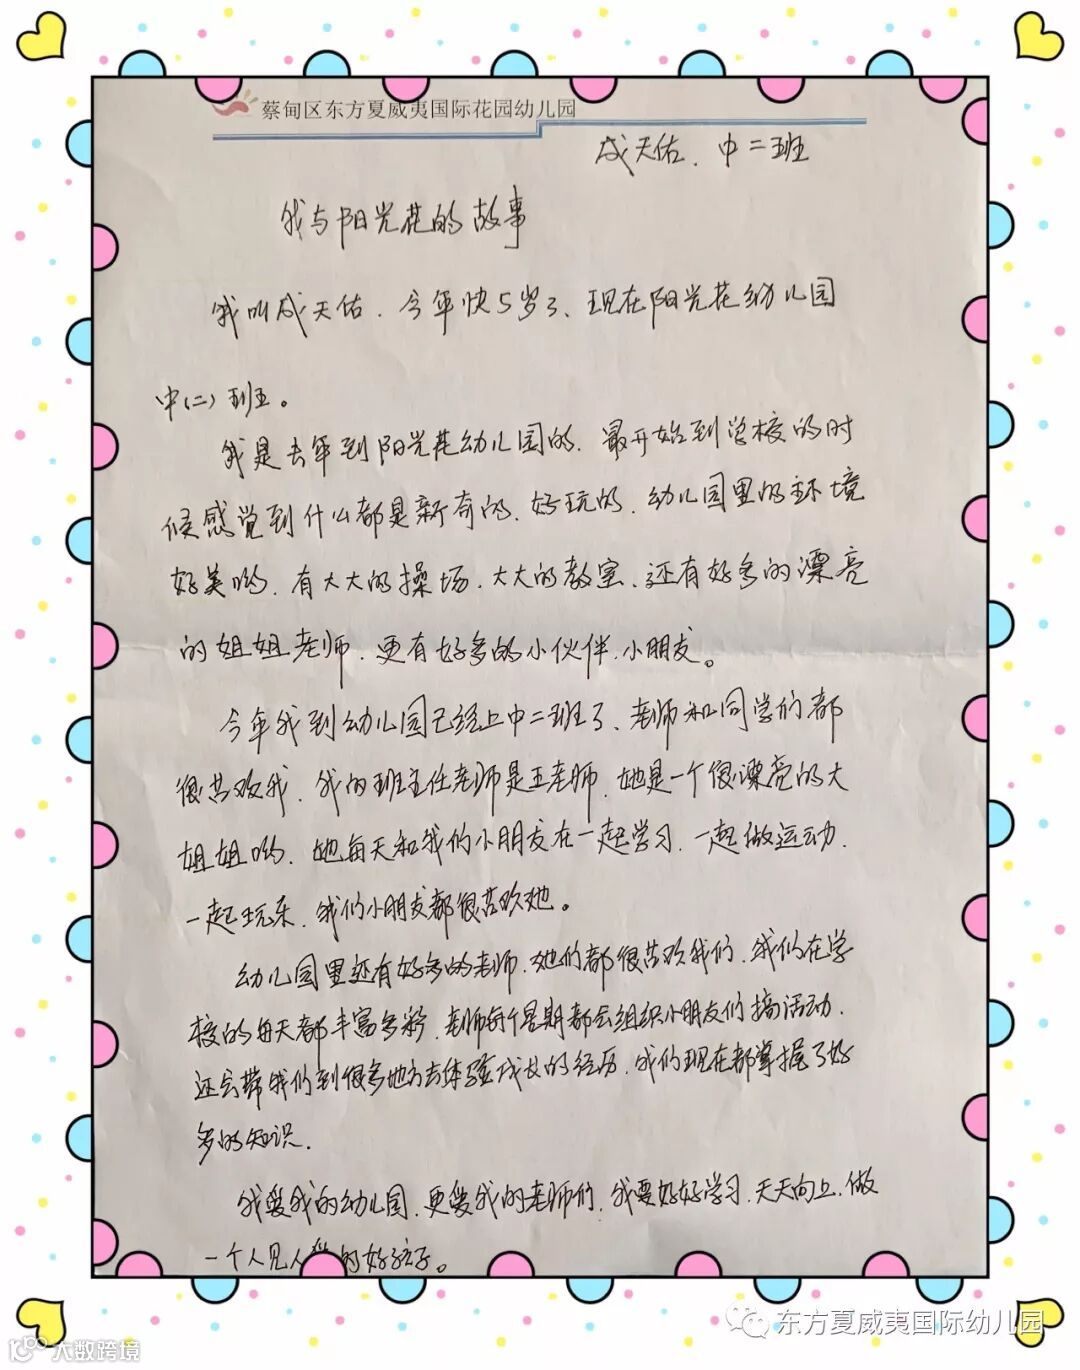 蔡甸区东方夏威夷国际花园幼儿园
成天佑、中二班
我与阳光花的故事
我叫成天佑、今年快5岁了、现在阳光花幼儿园
中(二)班。
我是去年到阳光花幼儿园的、最开始到学校的时
候感觉到什么都是新奇的、好玩的、幼儿园里的环境
好美哟、有大大的操场、大大的教室、还有好多的漂亮
的姐姐老师、更有好多的小伙伴、小朋友。
今年我到幼儿园已经上中二班了、老师和同学们都
很喜欢我、我的班主任老师是王老师、她是一个很漂亮的大
姐姐哟、她每天和我们小朋友在一起学习、一起做运动、
一起玩乐、我们小朋友都很喜欢她。
幼儿园里还有好多的老师、她们都很喜欢我们、我们在学
校的每天都丰富多彩、老师每个星期都会组织小朋友们搞活动、
还会带我们到很多地方去体验成长的经历、我们现在都掌握了好
多的知识、
我爱我的幼儿园、更爱我的老师们、我要好好学习、天天向上、做
一个人见人爱的好孩子。
东方夏威夷国际幼儿园
大数跨境